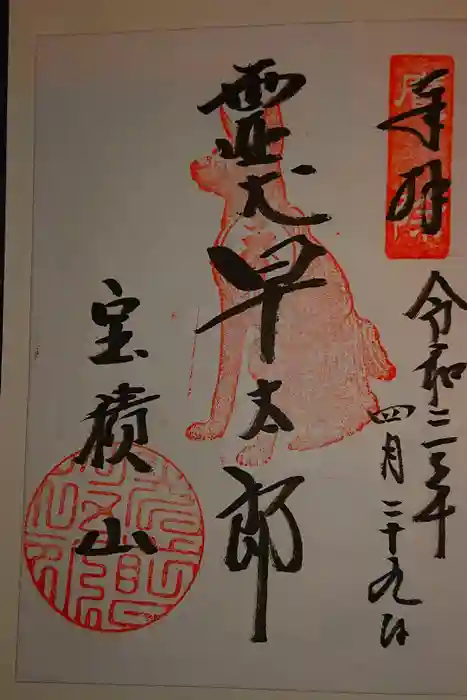 奉拝
令和二年
四月二十九日
霊犬早太郎
宝積山